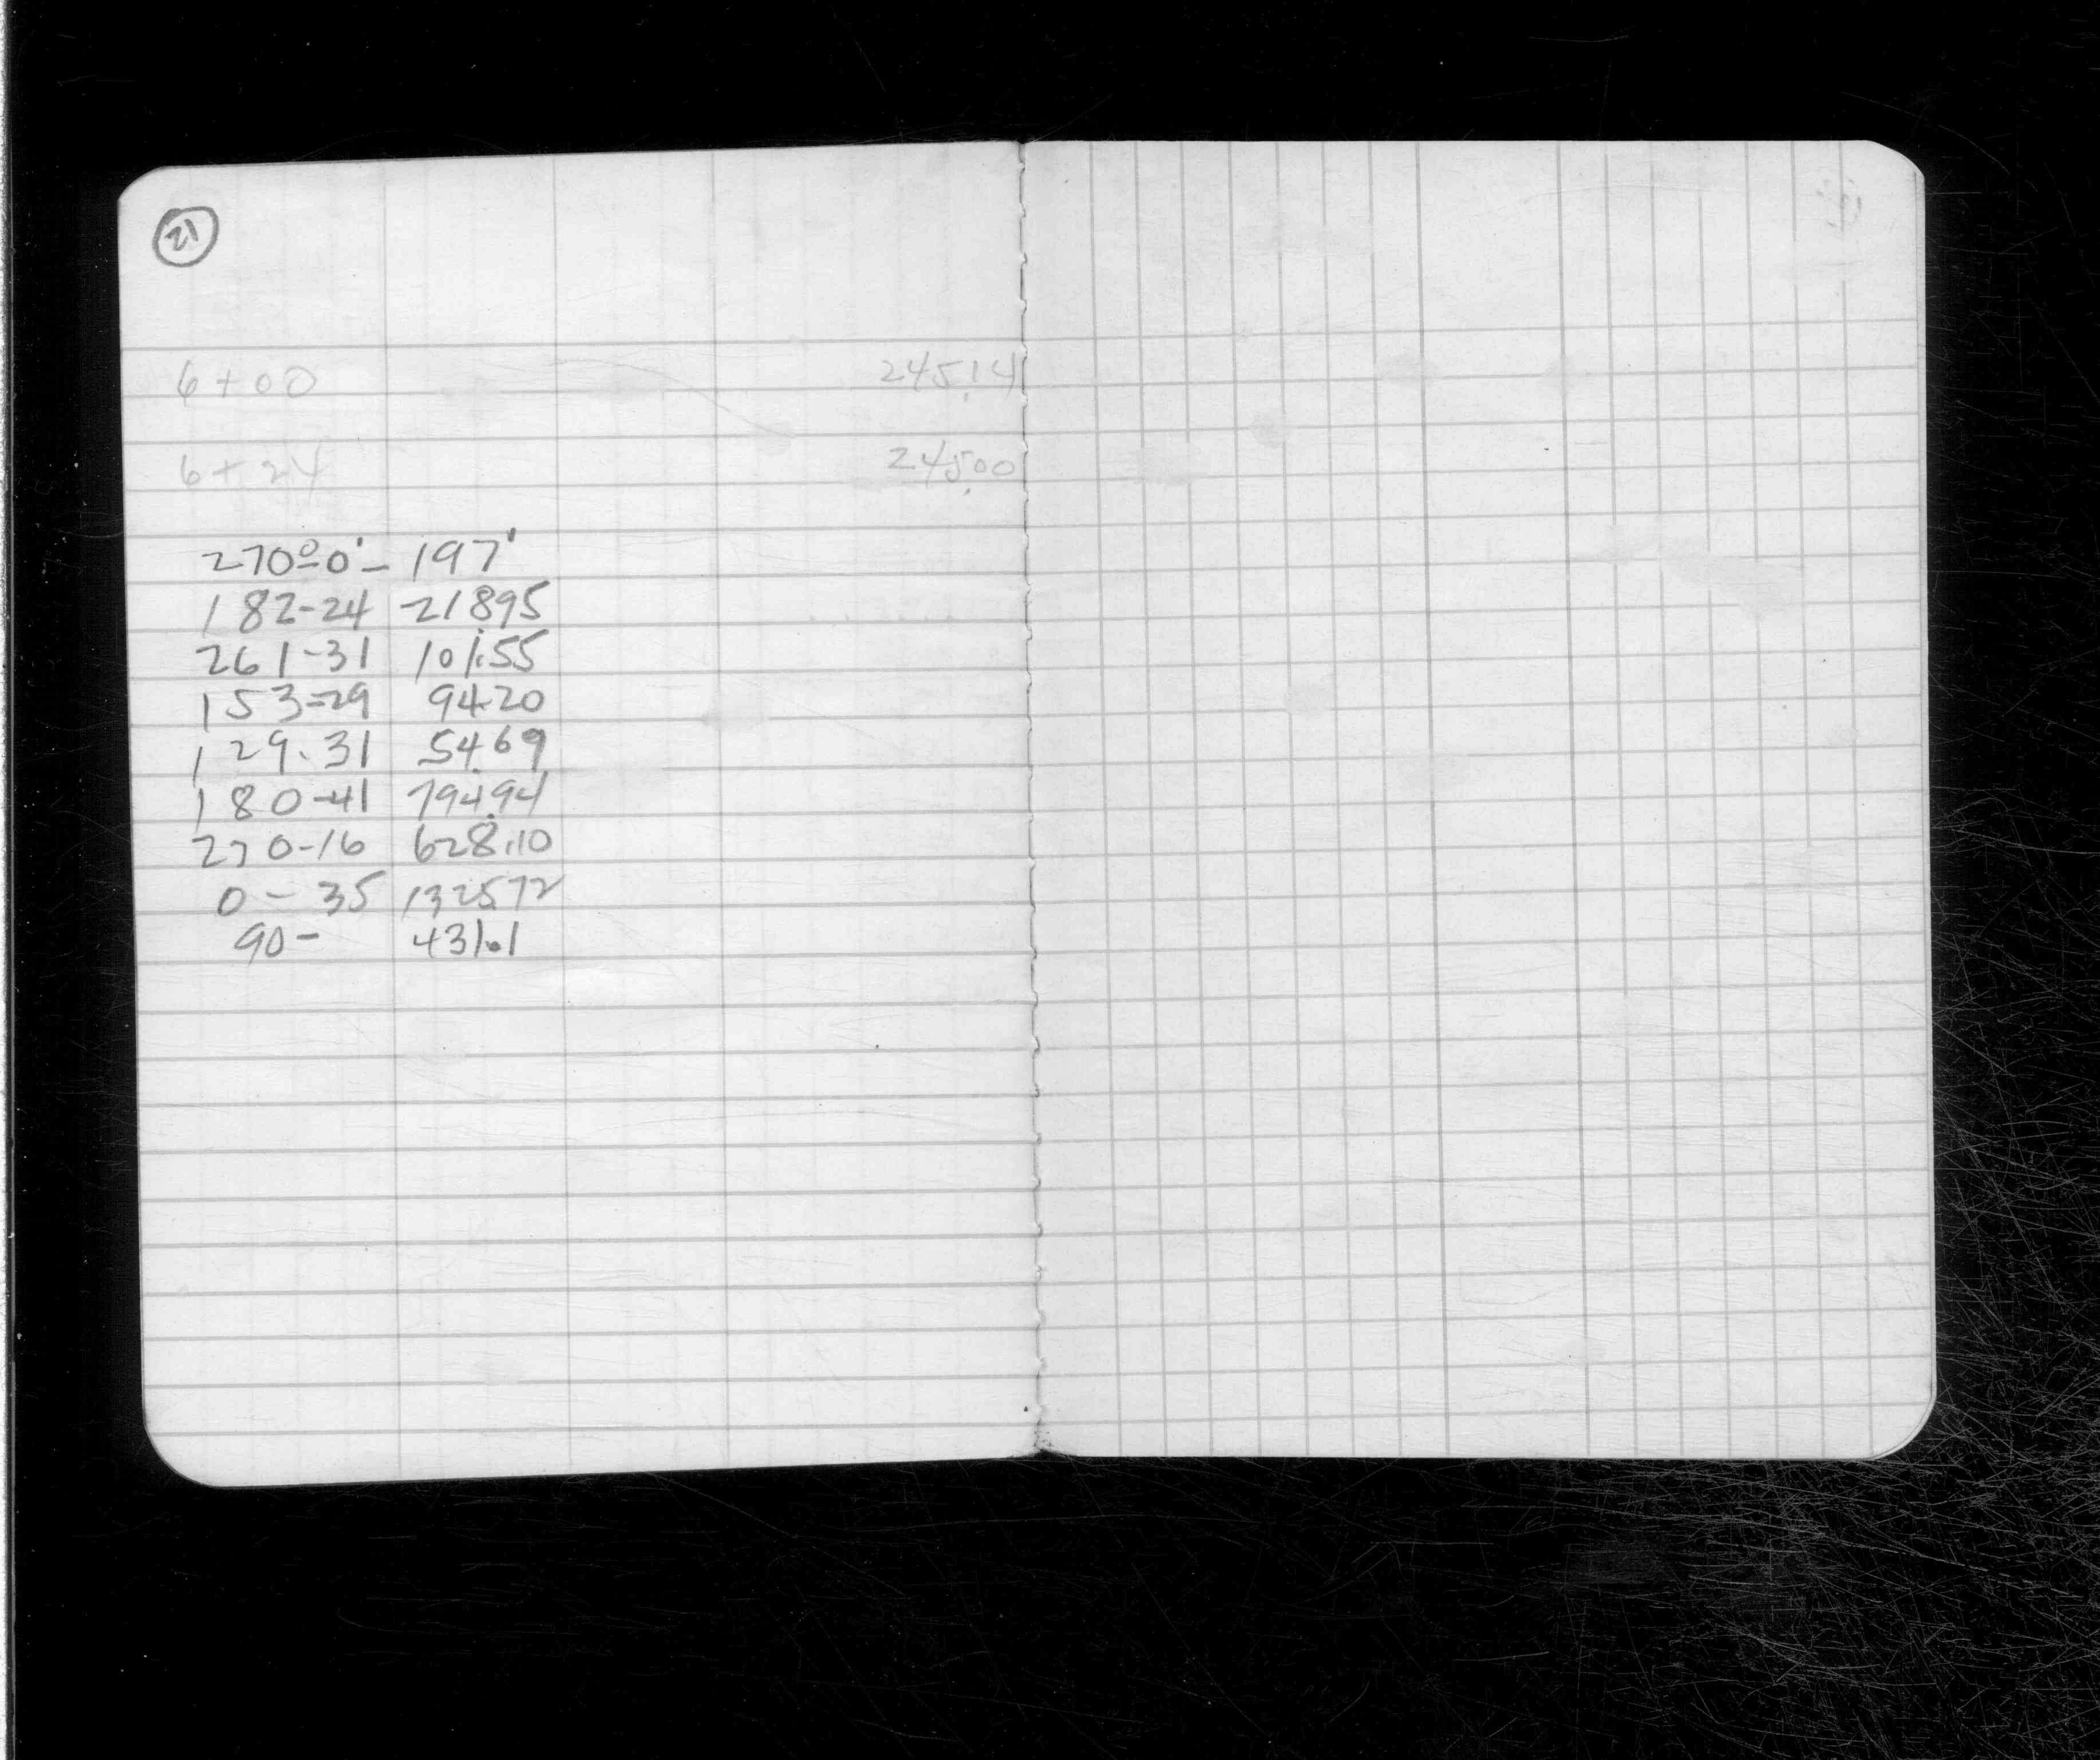 21
6+00 245.14
6+24 245.00
270°-0' - 197'
182-24 218.95
261-31 101.55
153-29 94.20
129.31 54.69
180-41 794.94
270-16 628.10
0-35 1325.72
90- 431.01